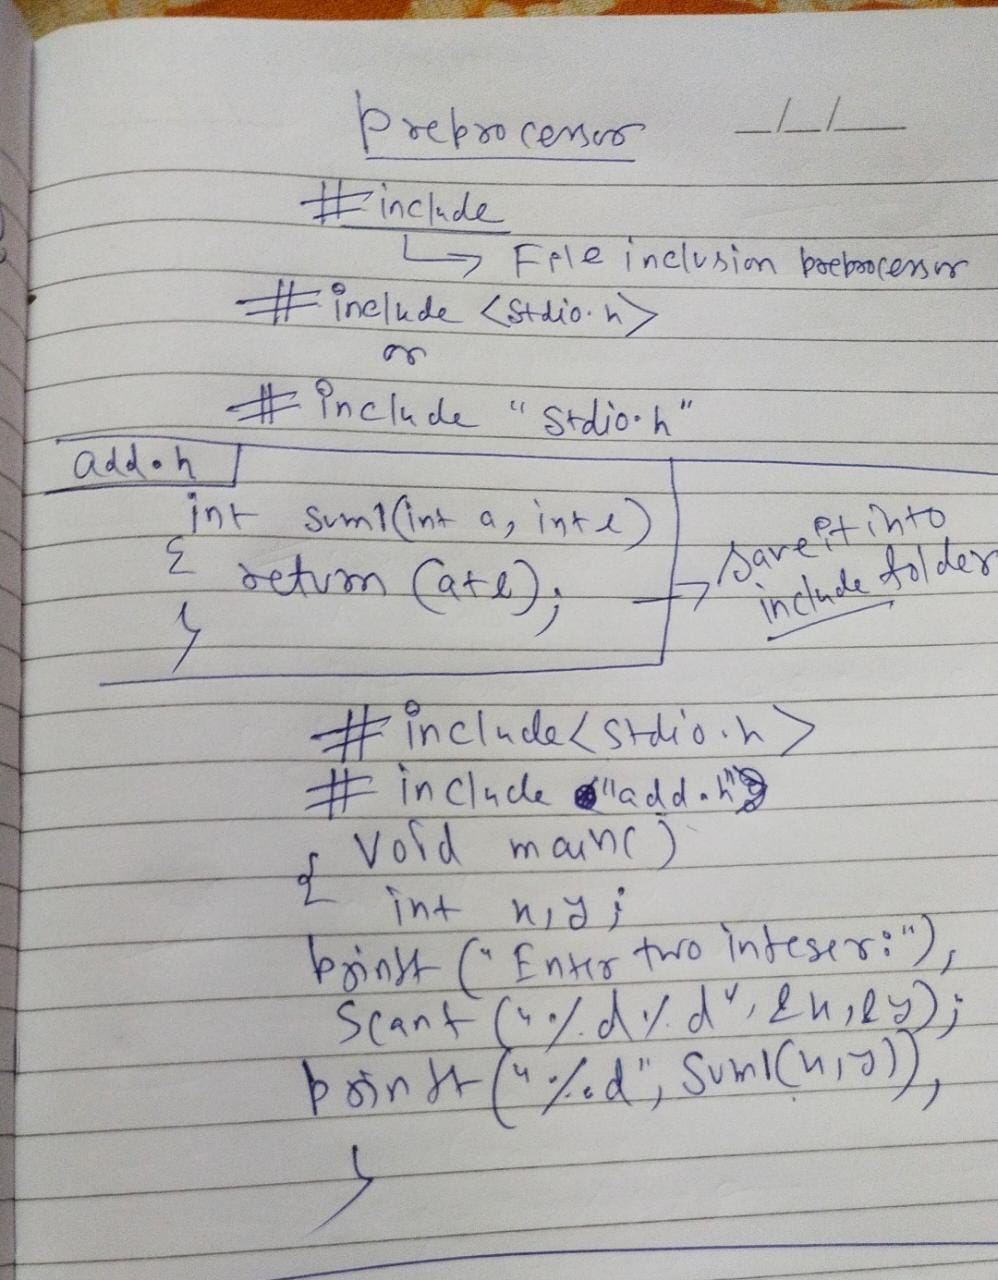 Preprocessor __/__/____
#include
↳ File inclusion preprocessor
#include <stdio.h>
or
#include "stdio.h"
add.h
int sum1(int a, int l)
{
return (a+l);
}
→ save it into
include folder
#include<stdio.h>
#include "add.h"
void main()
{
int x,y;
printf("Enter two integer:");
Scanf("%d%d",&x,&y);
printf("%d", sum1(x,y));
}